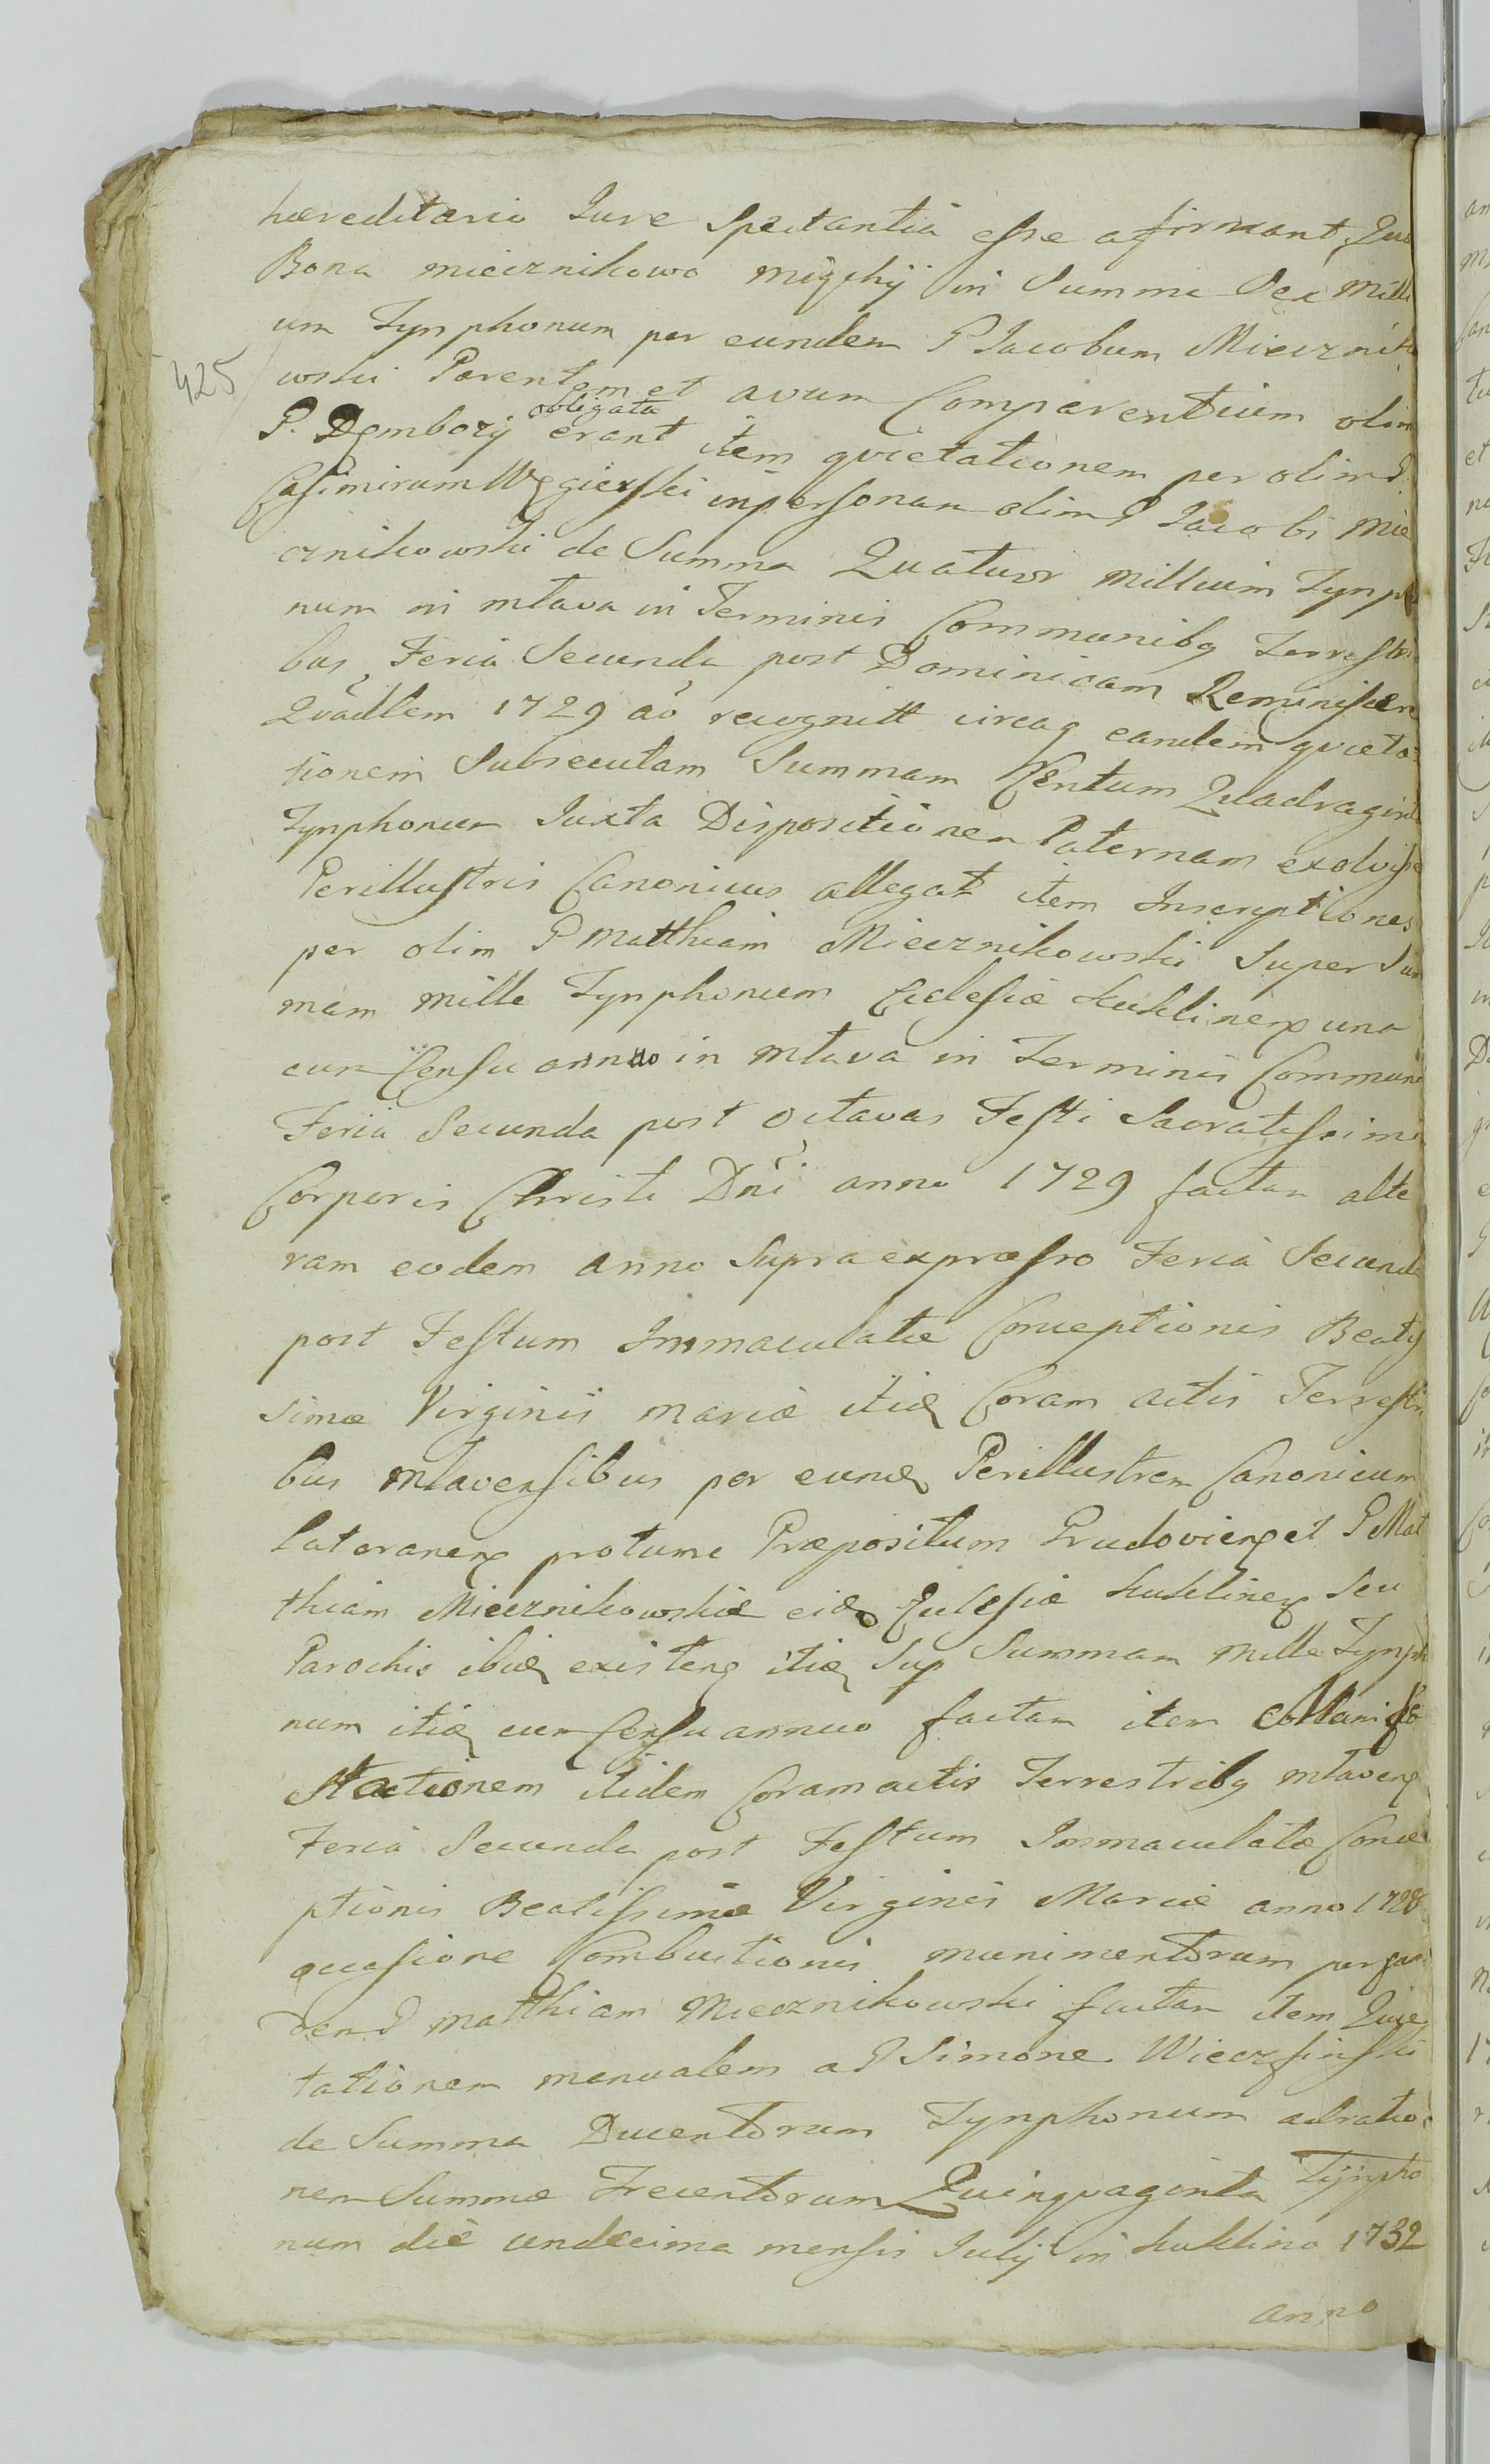 hæreditario Jure Spectantia esse afirmant Quo
Bona miecznikowo migchij in Summa Sex Milli
um Tynphonum per eundem P Jacobum Mieczniko
wski Parentem et avum Comparentium olim
425
P. Dembozij obligata erant item qvietationem per olim P.
Casimirum Węgierski in personam olim P Jacobi Mie
cznikowski de Summa Quatuor millium Tynpho
num in mlava in Terminis Communibq Terrestri
bus, Feria Secunda post Dominicam Reminiscere
Qvadlem 1729 ao recognitt circaq eandem qvieta
tionem Subsecutam Summam Centum Quadraginta
Tynphonum Juxta Dispositionem Paternam exolvisse
Perillustris Canonicus allegat item Inscryptiones
per olim P Matthiam Miecznikowski Super Sum
mam mille Tynphonum Ecclesiæ kuklinen una
cum Censu annuo in mlava in Terminis Communi
Feria Secunda post Octavas Festi Sacratissimi
Corporis Christi Dni anno 1729 factam alte
ram eodem anno Supra expræsso Feria Secunda
post Festum Immaculatæ Conceptionis Beatis
simæ Virginis mariæ itid Coram actis Terrestri
bus mlavensibus per eund Perillustrem Canonicum
lateranen protunc Præpositum Grudovien et P Mat
thiam Miecznikowskie eid Eclesiæ kuklinen Seu
Parochis ibid existen itid Sup Summam Mille Tynpho
num itid cum Censu annuo factam item
itidem Coram actis Terrestribq mlaven
Feria Secunda post Festum Immaculatæ Conce
ptionis Beatissimæ Virginis Mariæ anno 1728
occasione Combustionis munimentorum per
dem P matthiam Miecznikowski factam item Quie
tationem manualem a P Simone Wieczfinski
de Summa Ducentorum Tynphonum ad ratio
nem Summæ Trecentorum Quinqvaginta Tynpho
num die undecima mensis Julij in kuklino 1732
anno